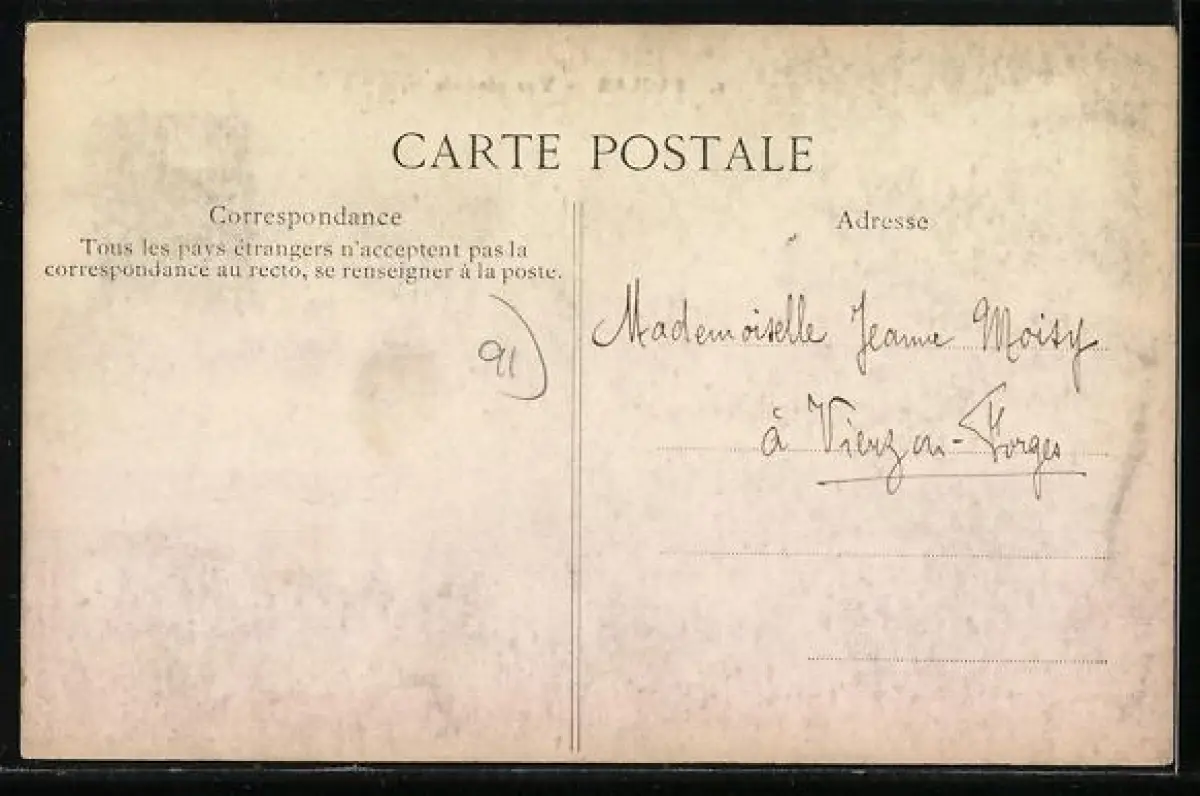 CARTE POSTALE
Correspondance
Tous les pays étrangers n'acceptent pas la
correspondance au recto, se renseigner à la poste.
91)
Adresse
Mademoiselle Jeanne Moisy
à Vierzon-Forges